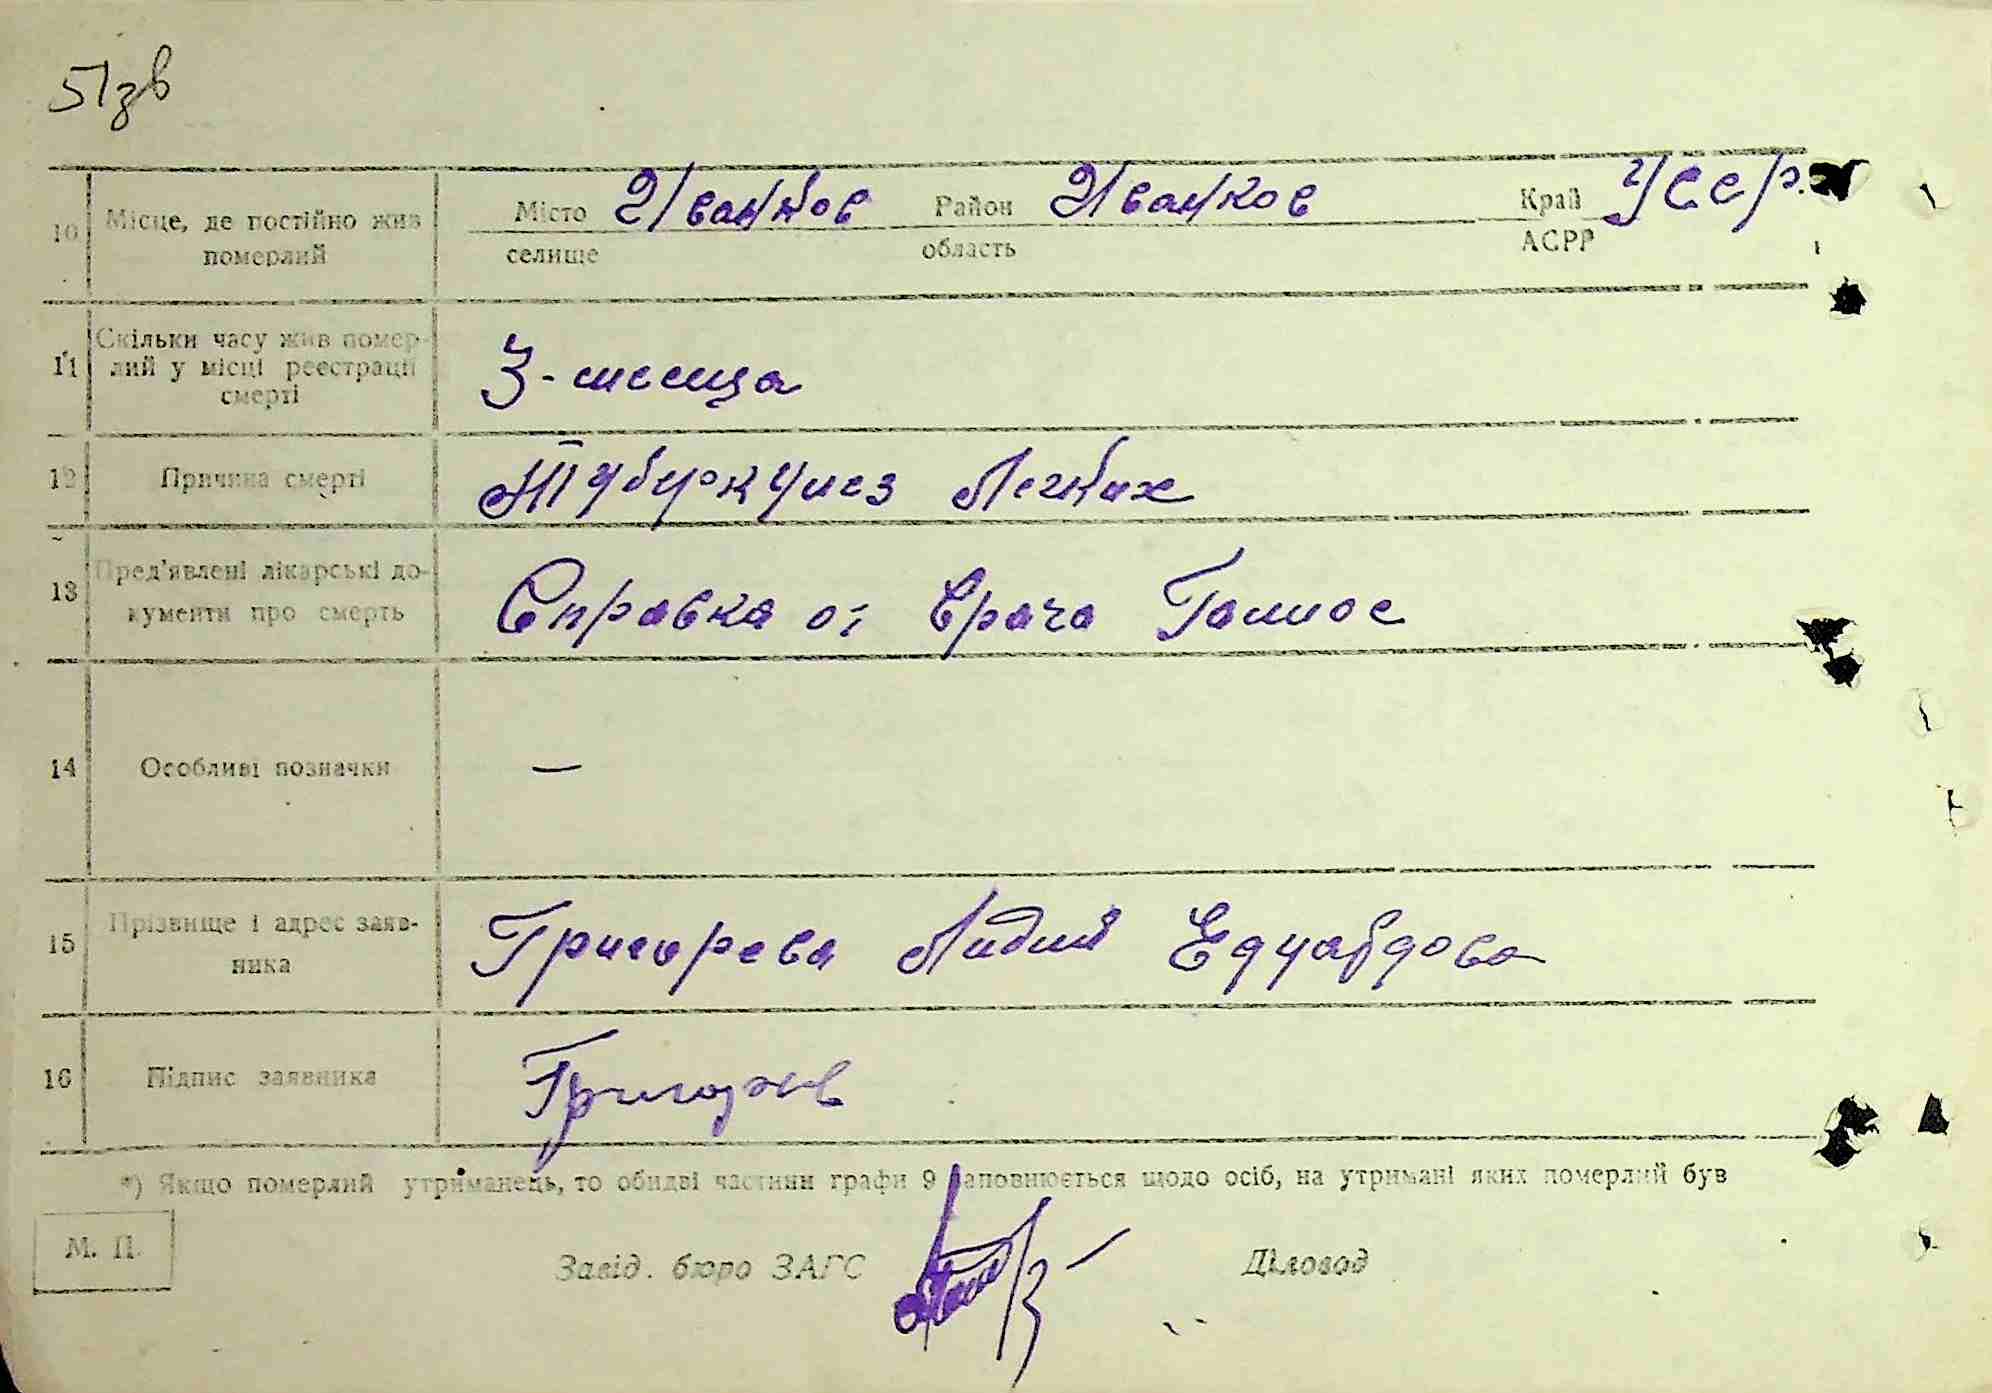 51зв
10 Місце, де постійно жив померлий
Місто Иванков Район Иванков Край УССР.
селище область АСРР
11 Скільки часу жив помер-
лий у місці реєстрації
смерті
3-месеца
12 Причина смерті Тубуркулез Легких
13 Пред'явлені лікарські до-
кументи про смерть
Справка от Врача
14 Особливі позначки —
15 Прізвище і адрес заяв-
ника
Григорева Лидия Едуардова
16 Підпис заявника
*) Якщо померлий утриманець, то обидві частини графи 9 заповнюється щодо осіб, на утримані яких померлий був
М. П.
Завід. бюро ЗАГС Діловод